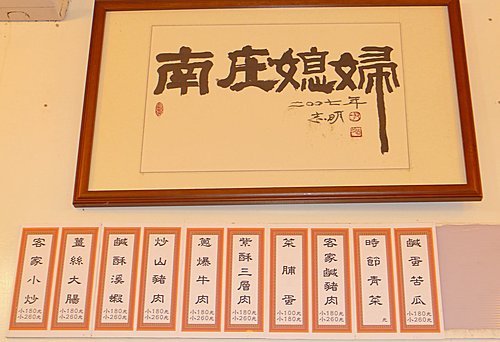 南庄媳婦
二00七年
志明
客家小炒
小180元
大260元
薑絲大腸
小180元
大260元
鹹酥溪蝦
小180元
大260元
炒山豬肉
小180元
大260元
蔥爆牛肉
小180元
大260元
紫酥三層肉
小180元
大260元
菜脯蛋
小100元
大180元
客家鹹豬肉
小180元
大260元
時節青菜
元
鹹蛋苦瓜
小180元
大260元